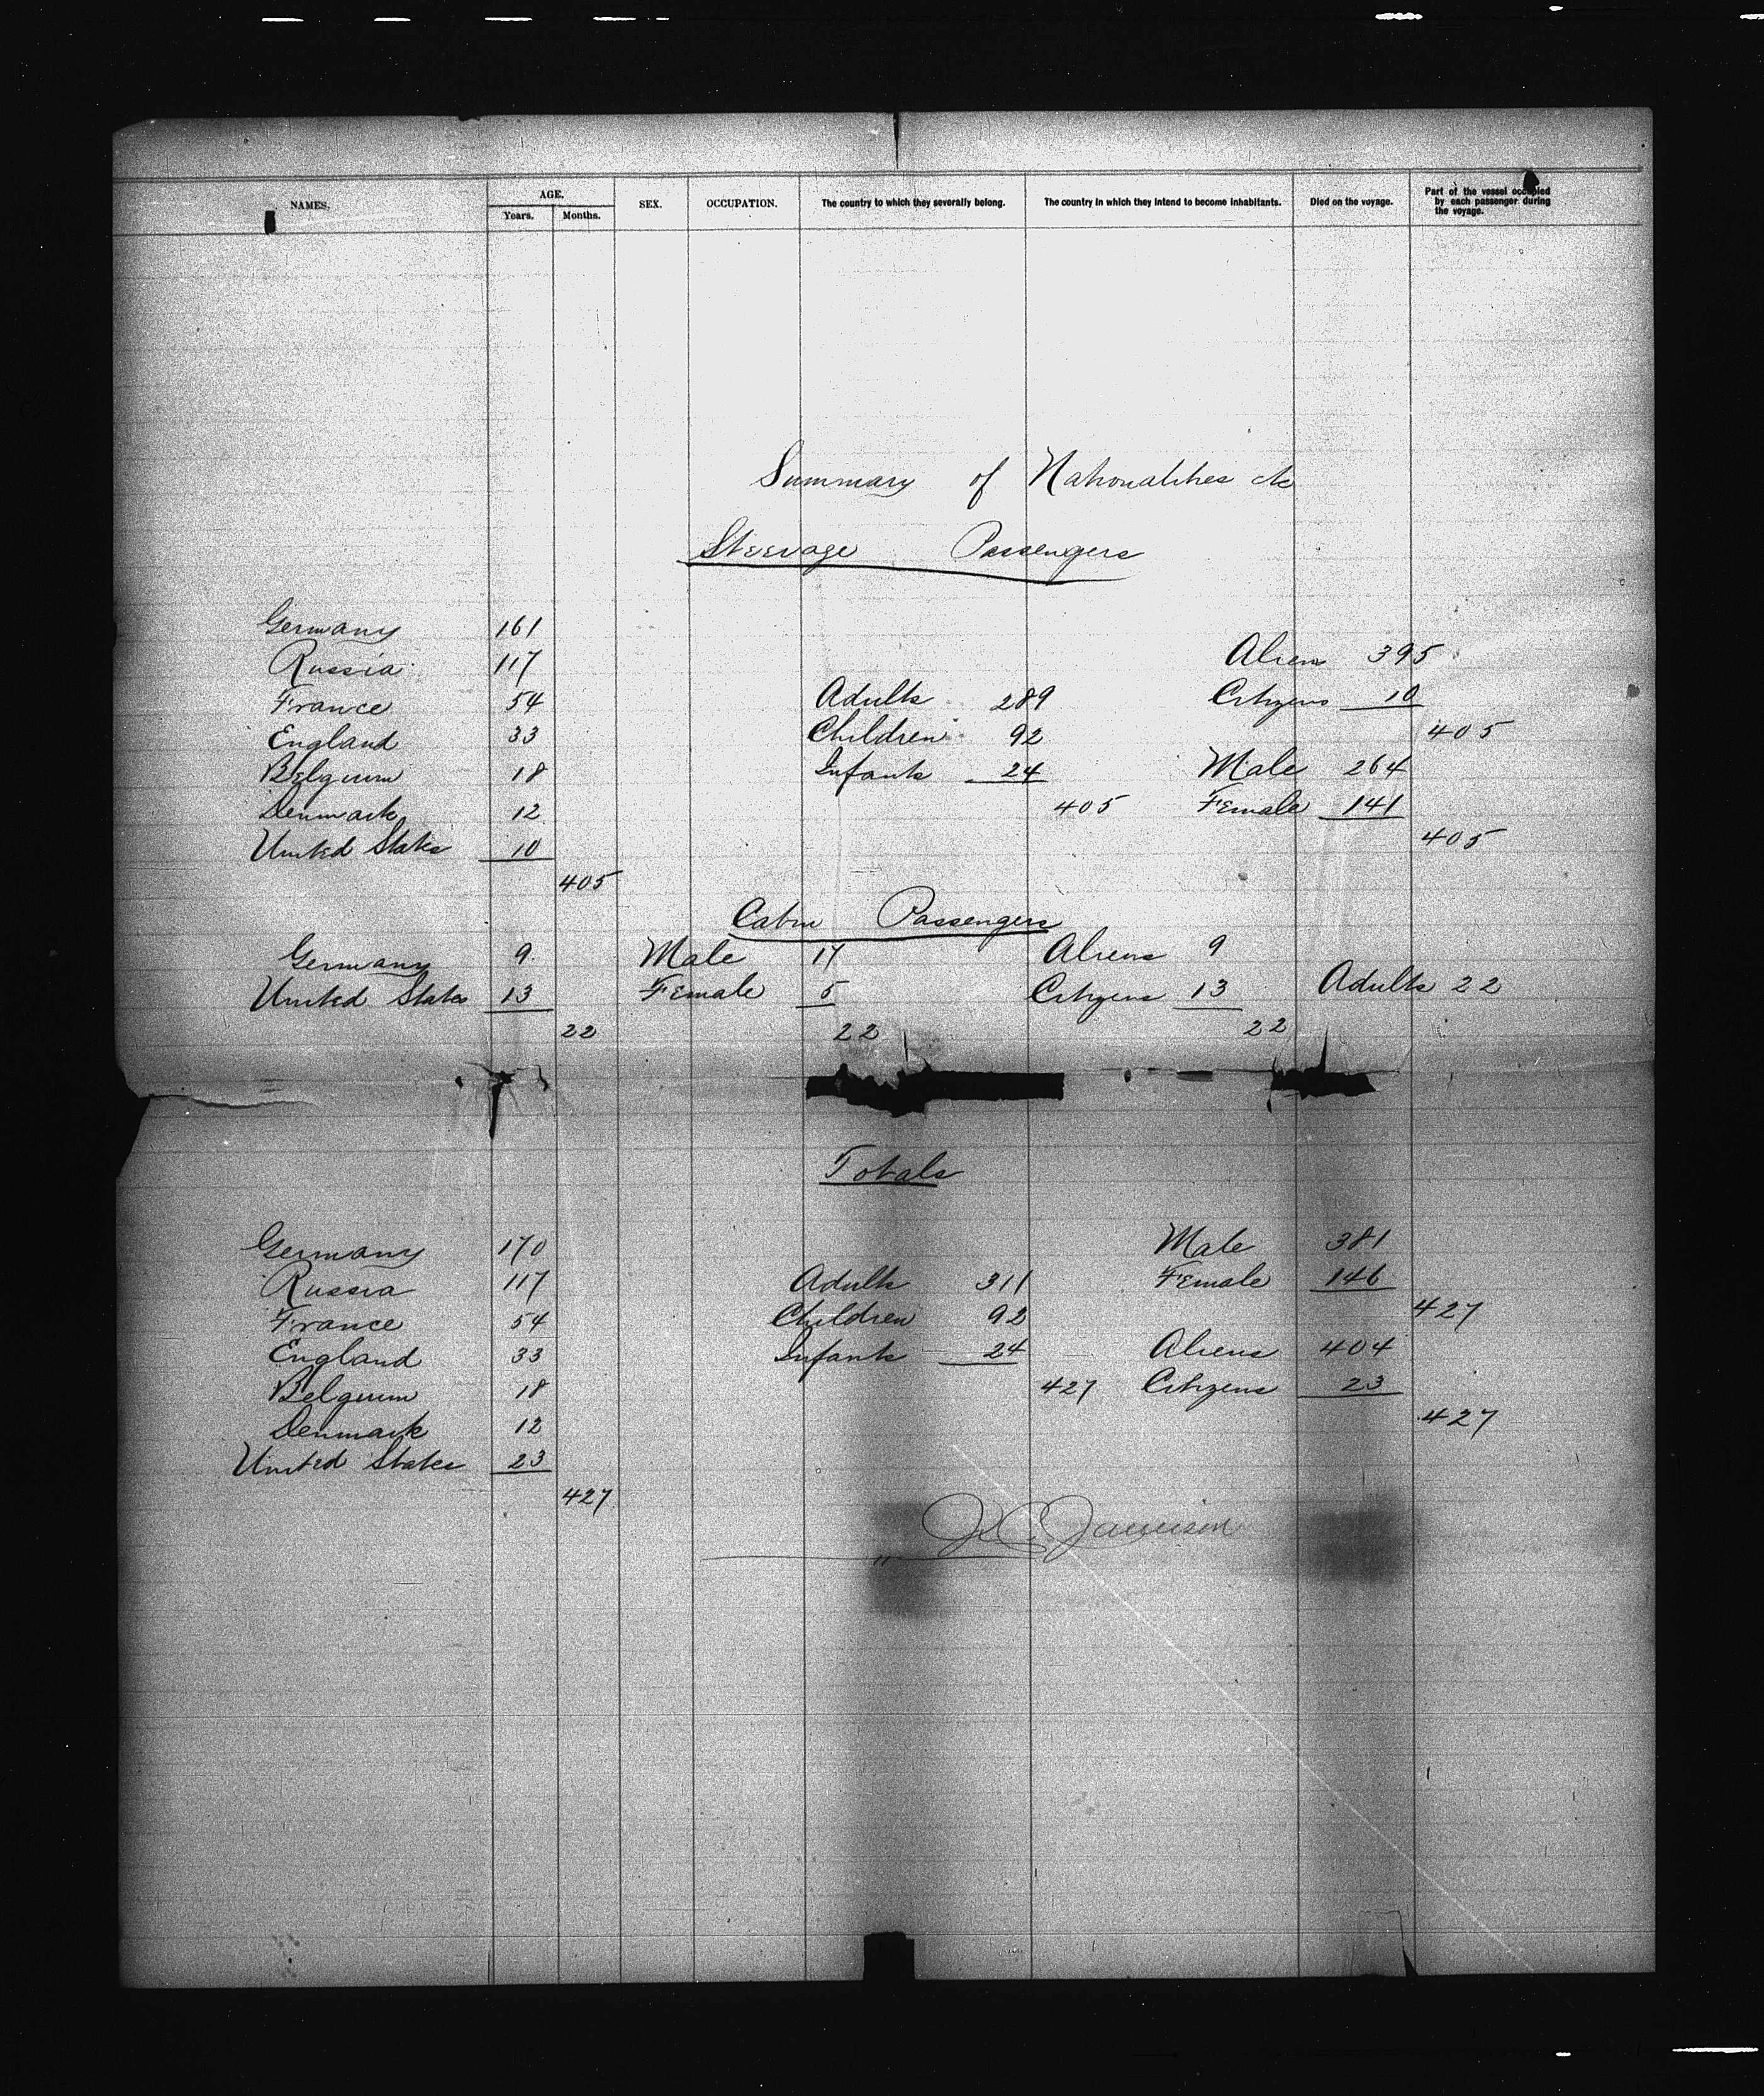 NAMES. AGE. SEX. OCCUPATION. The country to which they severally belong. The country in which they intend to become inhabitants. Died on the voyage. Part of the vessel occupied by each passenger during the voyage.
Years. Months.
Summary of Nationalities etc
Steerage Passengers
Germany 161
Russia 117
Alien 395
France 54 Adults 289 Citizens 10
England 33 Children 92 405
Belgium 18 Infants 24 Male 264
Denmark 12 405 Female 141
United States 10 405
405
Cabin Passengers
Germany 9 Male 17 Aliens 9
United States 13 Female 5 Citizens 13 Adults 22
22 22 22
Totals
Germany 170 Male 381
Russia 117 Adults 311 Female 146
France 54 Children 92 427
England 33 Infants 24 Aliens 404
Belgium 18 427 Citizens 23
Denmark 12 427
United States 23
427
Jamison